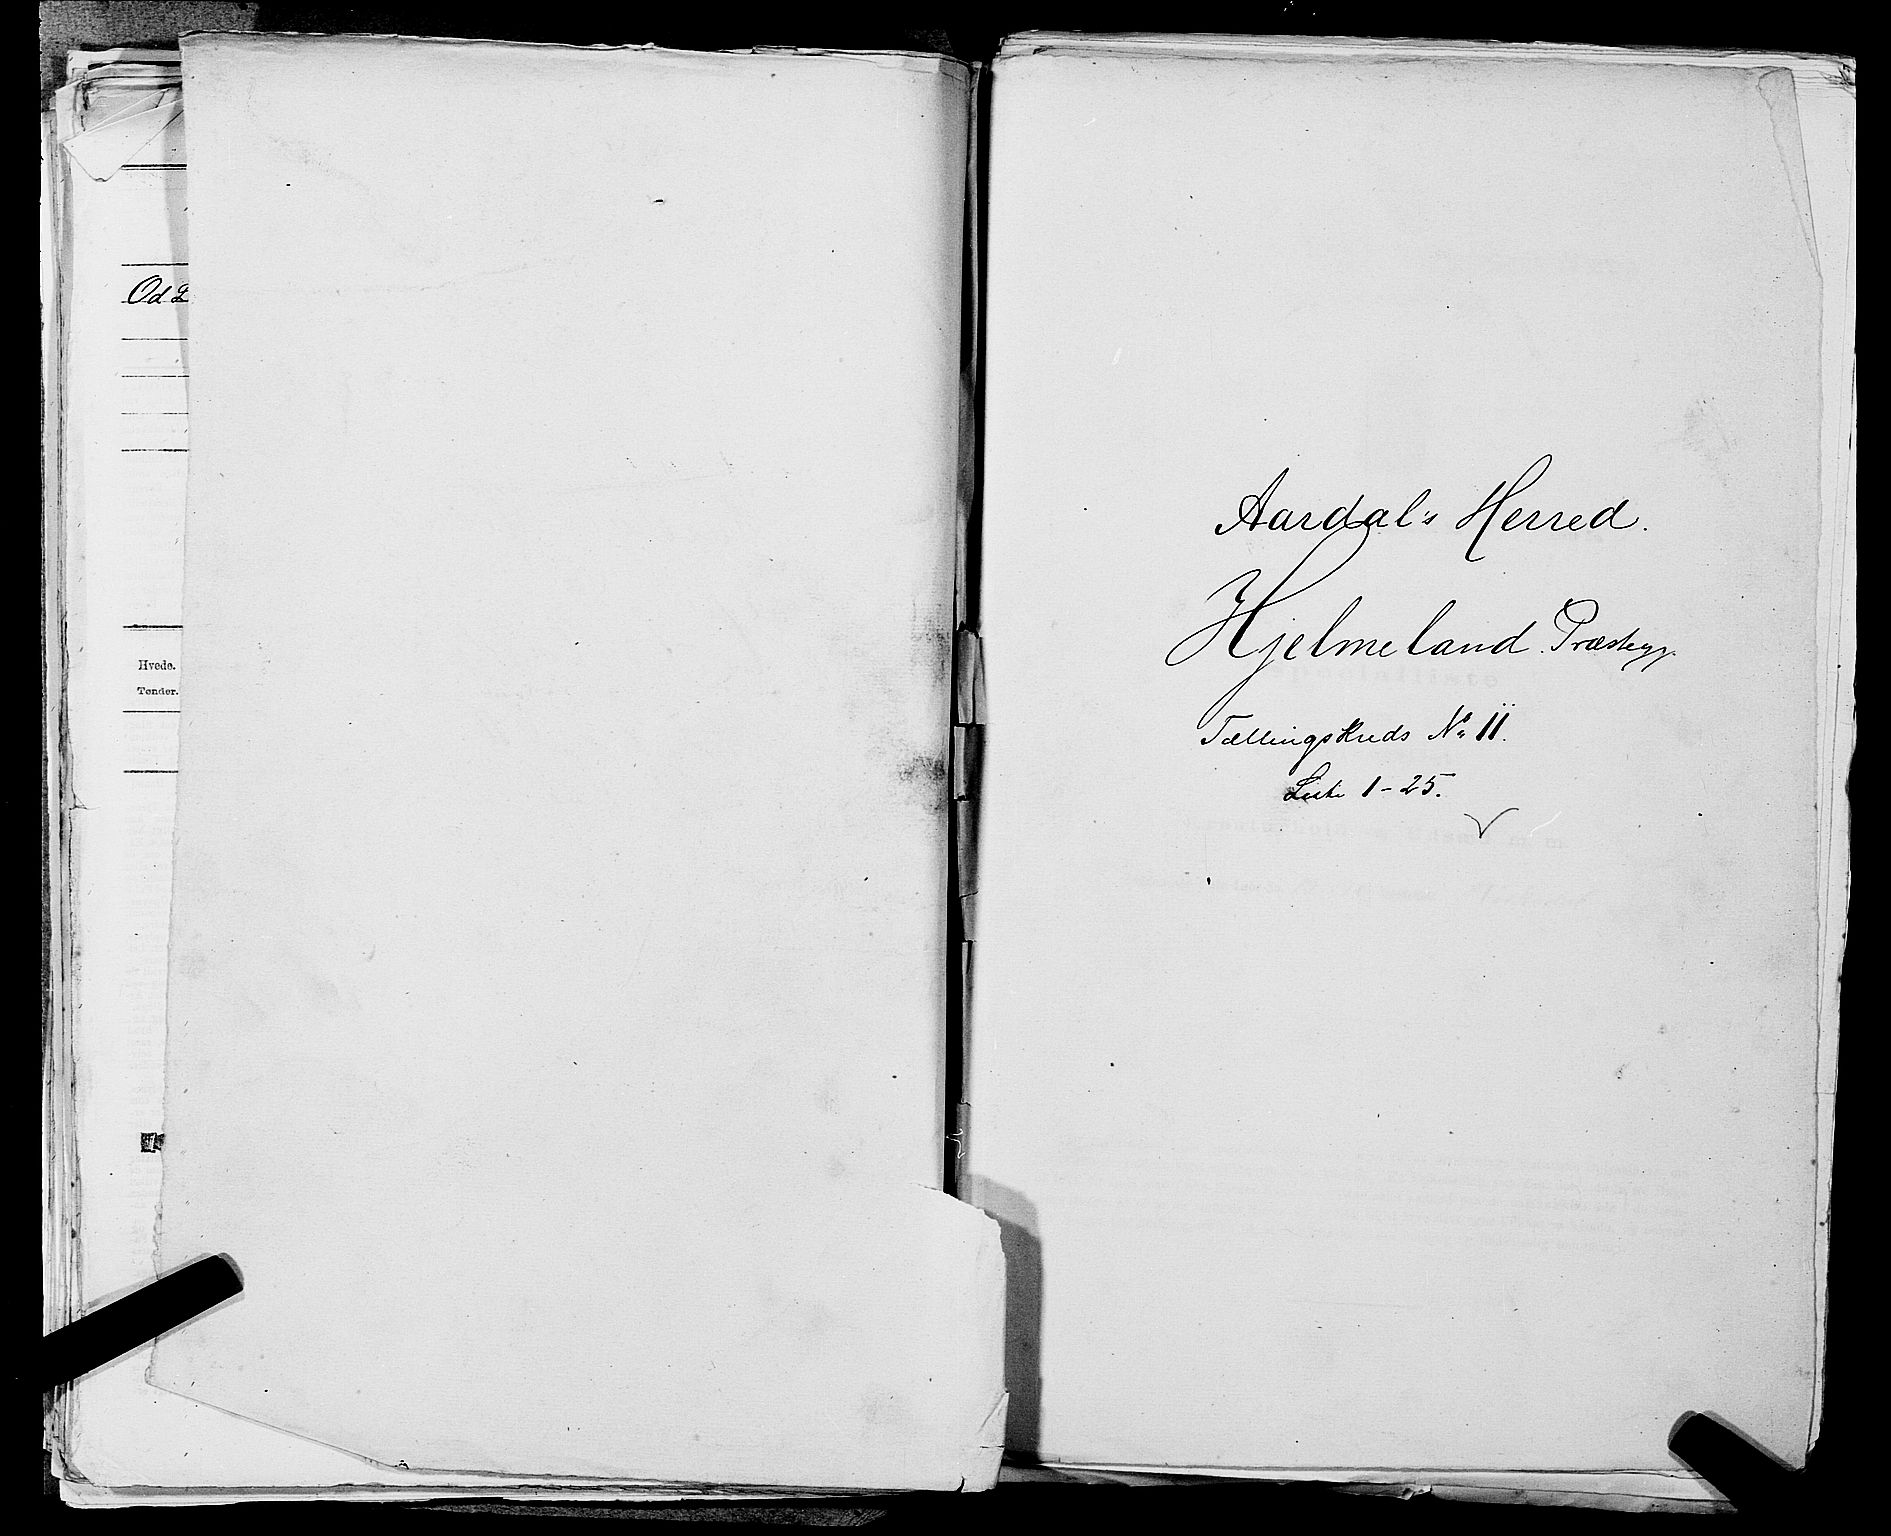 Od
Hvede.
Tønder.
Aardal's Herred.
Hjelmeland. Præstegj.
Tællingskreds No 11.
Liste 1-25.